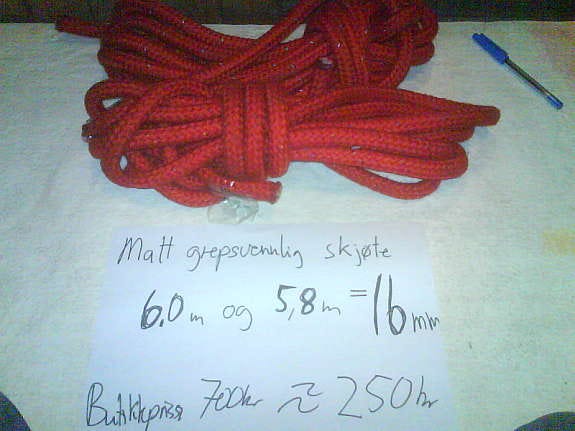 Matt grepsvennlig skjøte
6.0 m og 5,8 m = 16 mm
Butikkpriser 700kr ≈ 250 kr